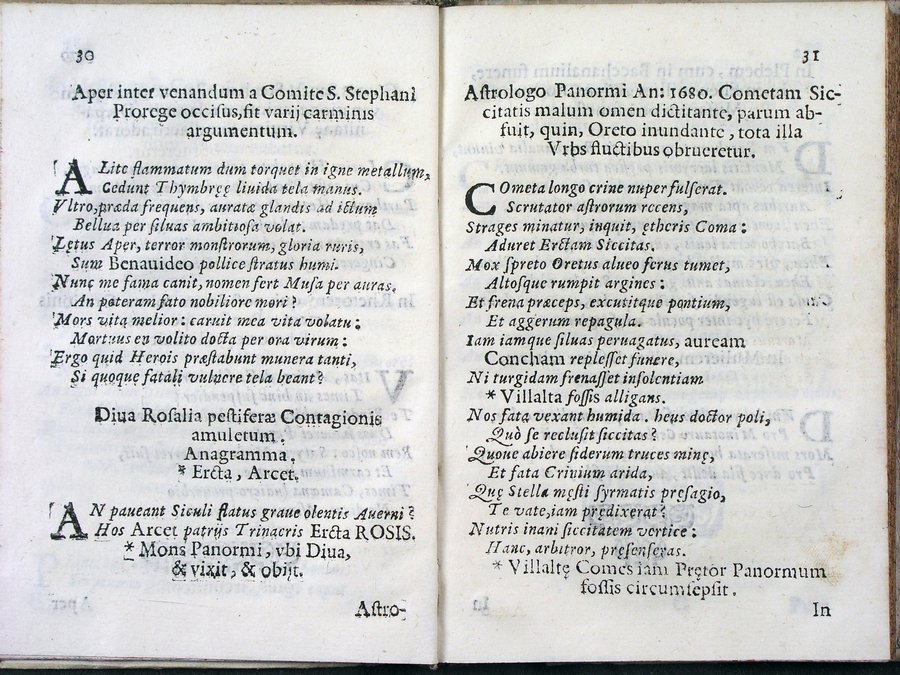 30
Aper inter venandum a Comite S. Stephani
Prorege occisus, fit varij carminis
argumentum.
ALite flammatum dum torquet in igne metallum,
Cedunt Thymbręę liuida tela manus.
Vltro, præda frequens, auratæ glandis ad ictum
Bellua per siluas ambitiosa volat.
Lętus Aper, terror monstrorum, gloria ruris,
Sum Benauideo pollice stratus humi.
Nunc me fama canit, nomen fert Musa per auras.
An poteram fato nobiliore mori?
Mors vita melior: caruit mea vita volatu:
Mortuus en volito docta per ora virum:
Ergo quid Herois præstabunt munera tanti,
Si quoque fatali vulnere tela beant?
Diua Rosalia pestiferæ Contagionis
amuletum.
Anagramma.
* Ercta, Arcet.
AN paueant Siculi flatus graue olentis Auerni?
Hos Arcet patrijs Trinacris Ercta ROSIS.
* Mons Panormi, vbi Diua,
& vixit, & obijt.
Astro-
31
Astrologo Panormi An: 1680. Cometam Sic-
citatis malum omen dictitante, parum ab-
fuit, quin, Oreto inundante, tota illa
Vrbs fluctibus obrueretur.
COmeta longo crine nuper fulserat.
Scrutator astrorum recens,
Strages minatur, inquit, etheris Coma:
Aduret Erctam Siccitas.
Mox spreto Oretus alueo ferus tumet,
Altosque rumpit argines:
Et frena præceps, excutitque pontium,
Et aggerum repagula.
Iam iamque siluas peruagatus, auream
Concham replesset funere,
Ni turgidam frenasset insolentiam
* Villalta fossis alligans.
Nos fata vexant humida. heus doctor poli,
Quò se reclusit siccitas?
Quoue abiere siderum truces minę,
Et fata Criuium arida,
Quę Stella męsti syrmatis pręsagio,
Te vate, iam prædixerat?
Nutris inani siccitatem vertice:
Hanc, arbitror, pręsenseras.
* Villaltę Comes iam Prętor Panormum
fossis circumsepsit.
In